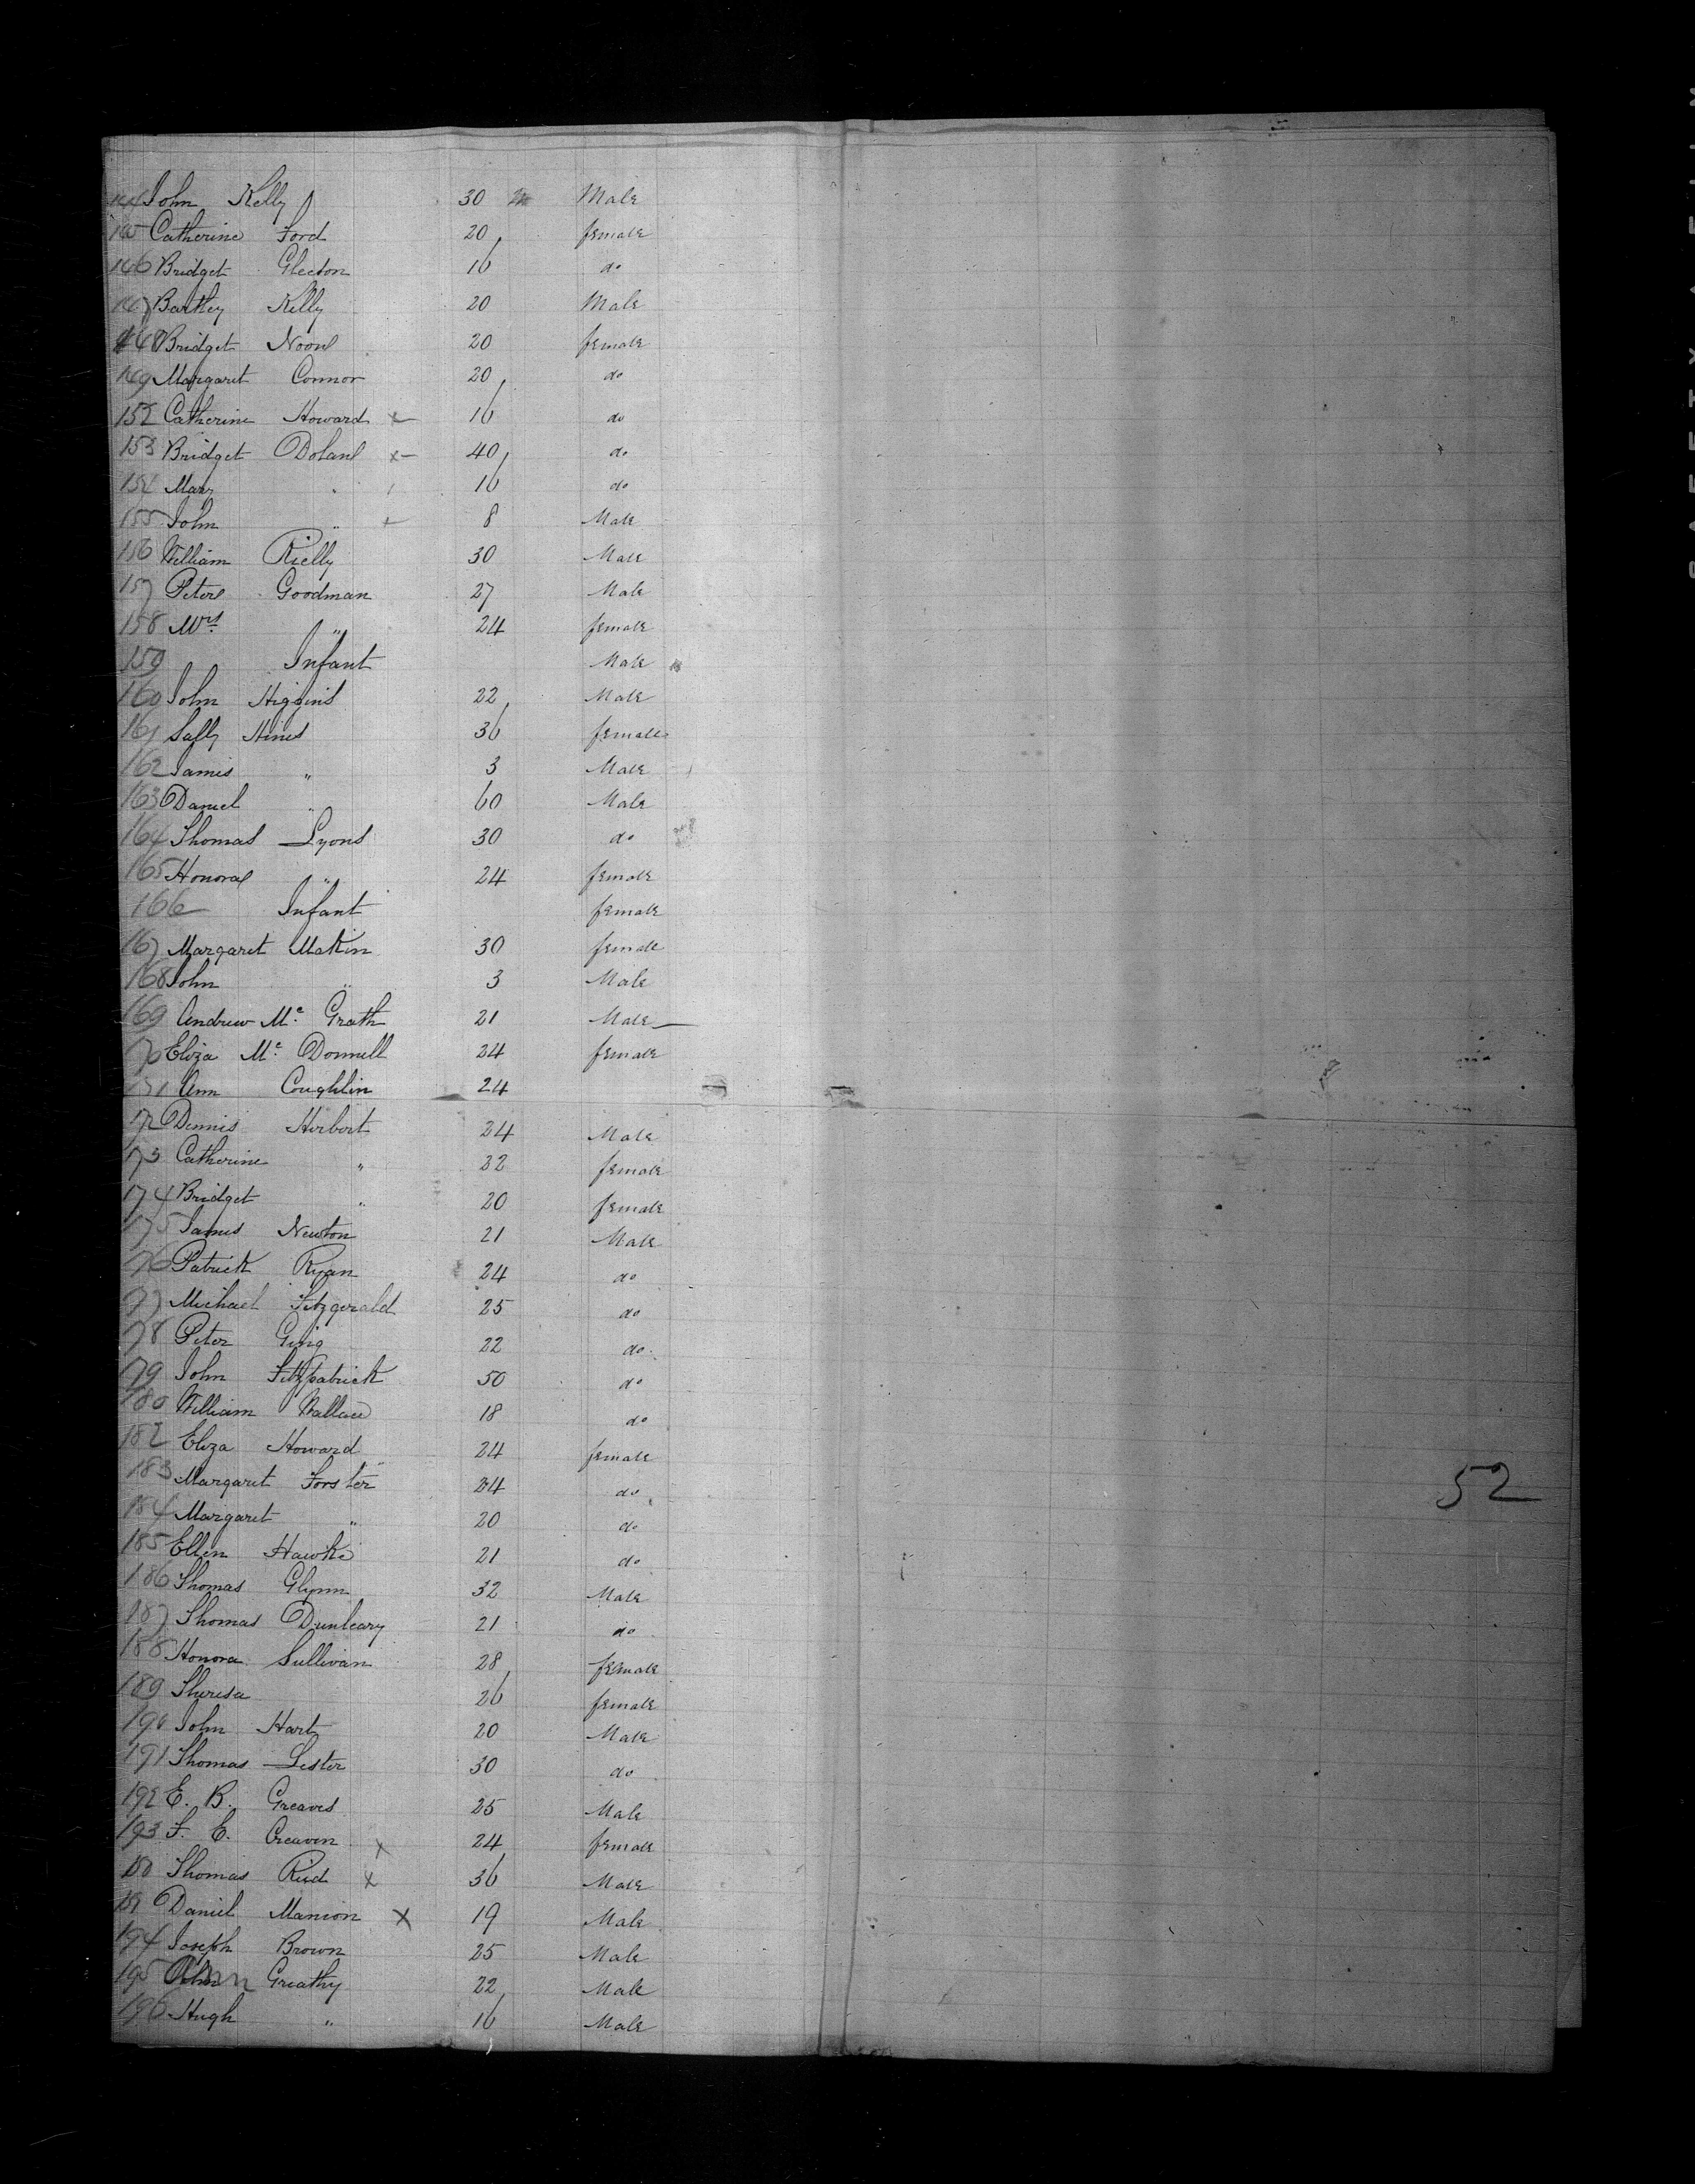 144 John Kelly 30 Male
145 Catherine Ford 20 female
146 Bridget Gleeton 16 do
147 Bartley Kelly 20 Male
148 Bridget Noone 20 female
149 Margaret Connor 20 do
152 Catherine Howard x 16 do
153 Bridget Dolan x 40 do
154 Mary " 16 do
155 John " x 8 Male
156 William Rielly 30 Male
157 Peter Goodman 27 Male
158 Mrs " 24 female
159 Infant Male
160 John Higgins 22 Male
161 Sally Hines 36 female
162 James " 3 Male
163 Daniel " 60 Male
164 Thomas Lyons 30 do
165 Honora " 24 female
166 Infant female
167 Margaret Makin 30 female
168 John " 3 Male
169 Andrew Mc Grath 21 Male
170 Eliza Mc Donnell 24 female
171 Ann Coughlin 24
172 Dennis Herbert 24 Male
173 Catherine " 22 female
174 Bridget " 20 female
175 James Newton 21 Male
176 Patrick Ryan 24 do
177 Michael Fitzgerald 25 do
178 Peter 22 do
179 John Fitzpatrick 50 do
180 William Wallace 18 do
182 Eliza Howard 24 female
183 Margaret Forster 24 do
184 Margaret " 20 do
185 Ellen Hawke 21 do
186 Thomas Glynn 32 Male
187 Thomas Dunleary 21 do
188 Honora Sullivan 28 female
189 Theresa 26 female
190 John Hart 20 Male
191 Thomas Lester 30 do
192 E. B. Greaves 25 Male
193 F. E. Creaven x 24 female
150 Thomas Ried x 36 Male
151 Daniel Manion x 19 Male
194 Joseph Brown 25 Male
195 Greathy 22 Male
196 Hugh " 16 Male
52
SAFETY